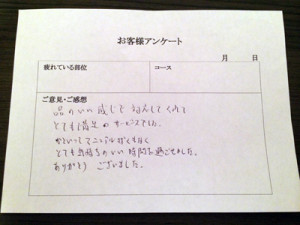 お客様アンケート
月 日
疲れている部位 コース
ご意見・ご感想
品のいい感じで してくれて
とても満足のサービスでした。
かといって
とても気持ちのいい時間を過ごせました。
ありがとうございました。